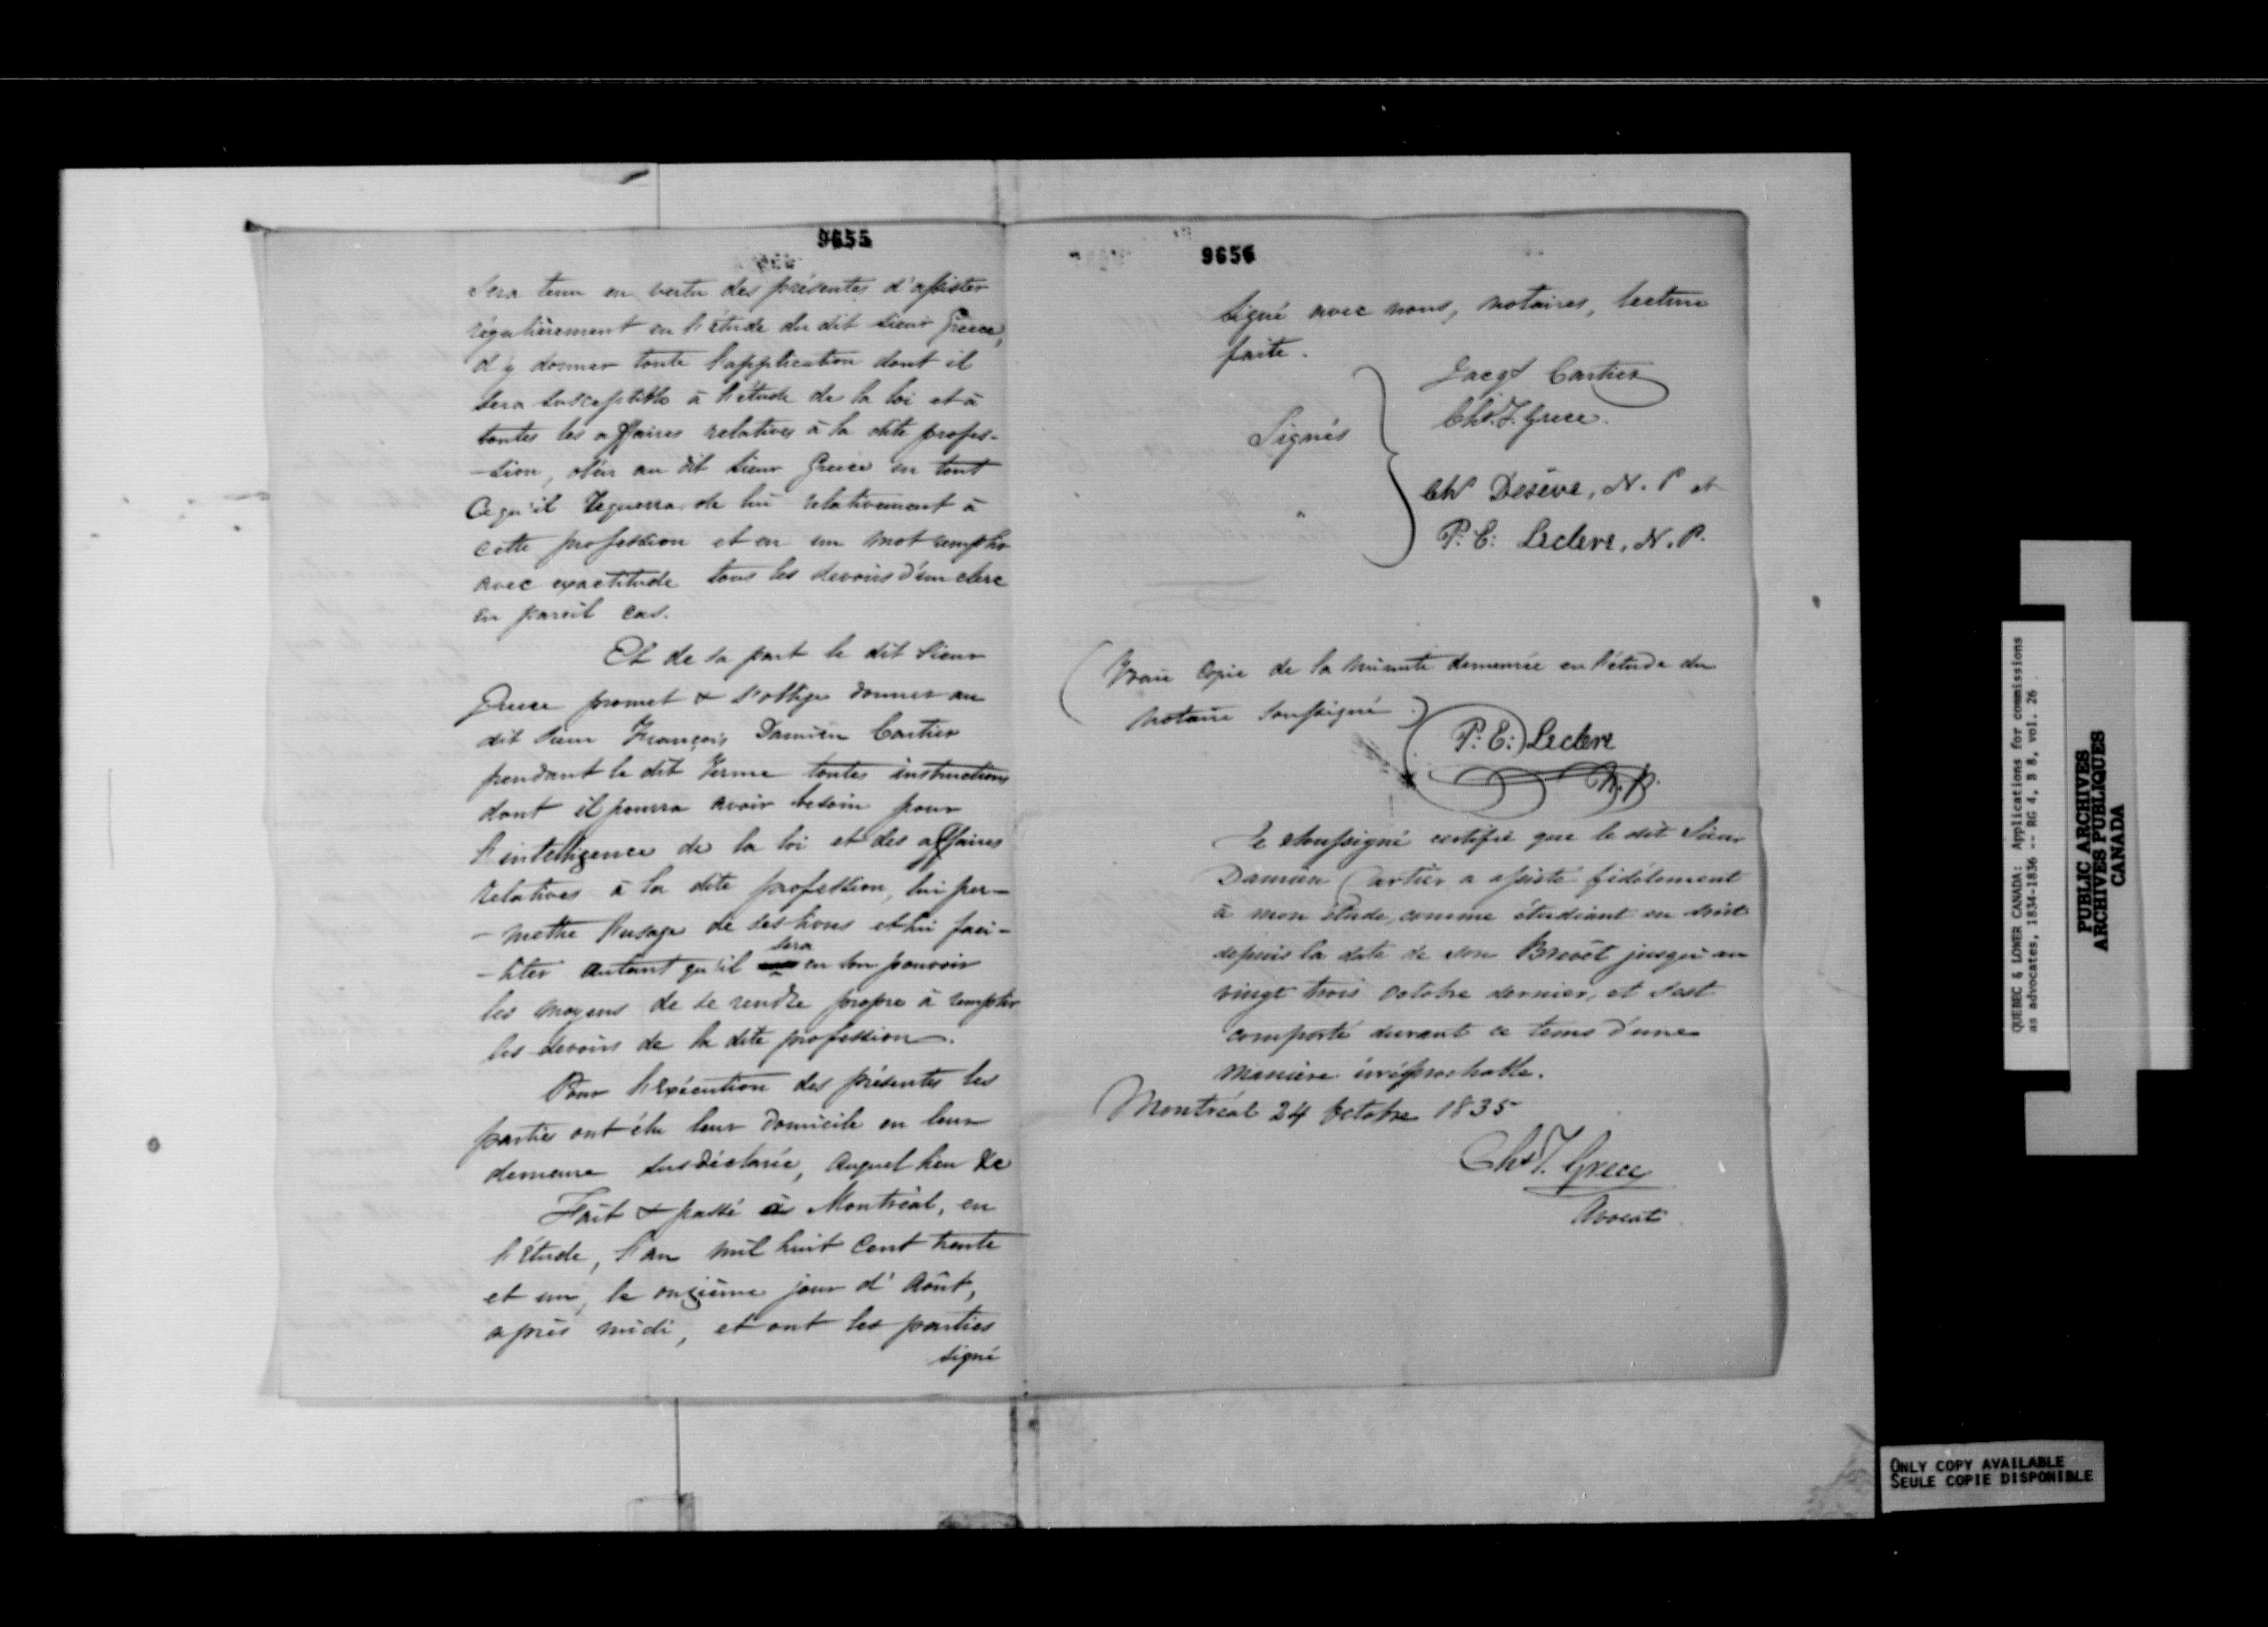 9655
sera tenu en vertu des présentes d'assister
régulièrement en l'étude du dit sieur Grece,
d'y donner toute l'application dont il
sera susceptible à l'étude de la loi et à
toutes les affaires relatives à la dite profes-
-sion, obéir au dit sieur Grece en tout
ce qu'il requerra de lui relativement à
cette profession et en un mot remplir
avec exactitude tous les devoirs d'un clerc
en pareil cas.
Et de sa part le dit sieur
Grece promet & s'oblige donner au
dit sieur François Damien Cartier
pendant le dit terme toutes instructions
dont il pourra avoir besoin pour
l'intelligence de la loi et des affaires
relatives à la dite profession, lui per-
-mettre l'usage de ses livres et lui faci-
-liter autant qu'il sera en son pouvoir
les moyens de se rendre propre à remplir
les devoirs de la dite profession.
Pour l'exécution des présentes les
parties ont élu leur domicile en leur
demeure susdéclarée, auquel lieu &c
Fait & passé à Montréal, en
l'étude, l'an mil huit cent trente
et un, le onzième jour d'Août,
après midi, et ont les parties
signé
9656
signé avec nous, notaires, lecture
faite.
Signés
Jacqs Cartier
Chs. J. Grece.
Chs Desève, N. P et
P. E: Leclere, N. P.
(Vraie copie de la minute demeurée en l'étude du
notaire soussigné.)
P: E: Leclere
N. P.
Je soussigné certifie que le dit Sieur
Damien Cartier a assisté fidèlement
à mon étude, comme étudiant en droit
depuis la date de son Brevêt jusqu'au
vingt trois octobre dernier, et s'est
comporté durant ce tems d'une
manière irréprochable.
Montréal 24 Octobre 1835
Chs J. Grece
Avocat
QUEBEC & LOWER CANADA: Applications for commissions
as advocates, 1834-1836 -- RG 4, B 8, vol. 26
PUBLIC ARCHIVES
ARCHIVES PUBLIQUES
CANADA
ONLY COPY AVAILABLE
SEULE COPIE DISPONIBLE